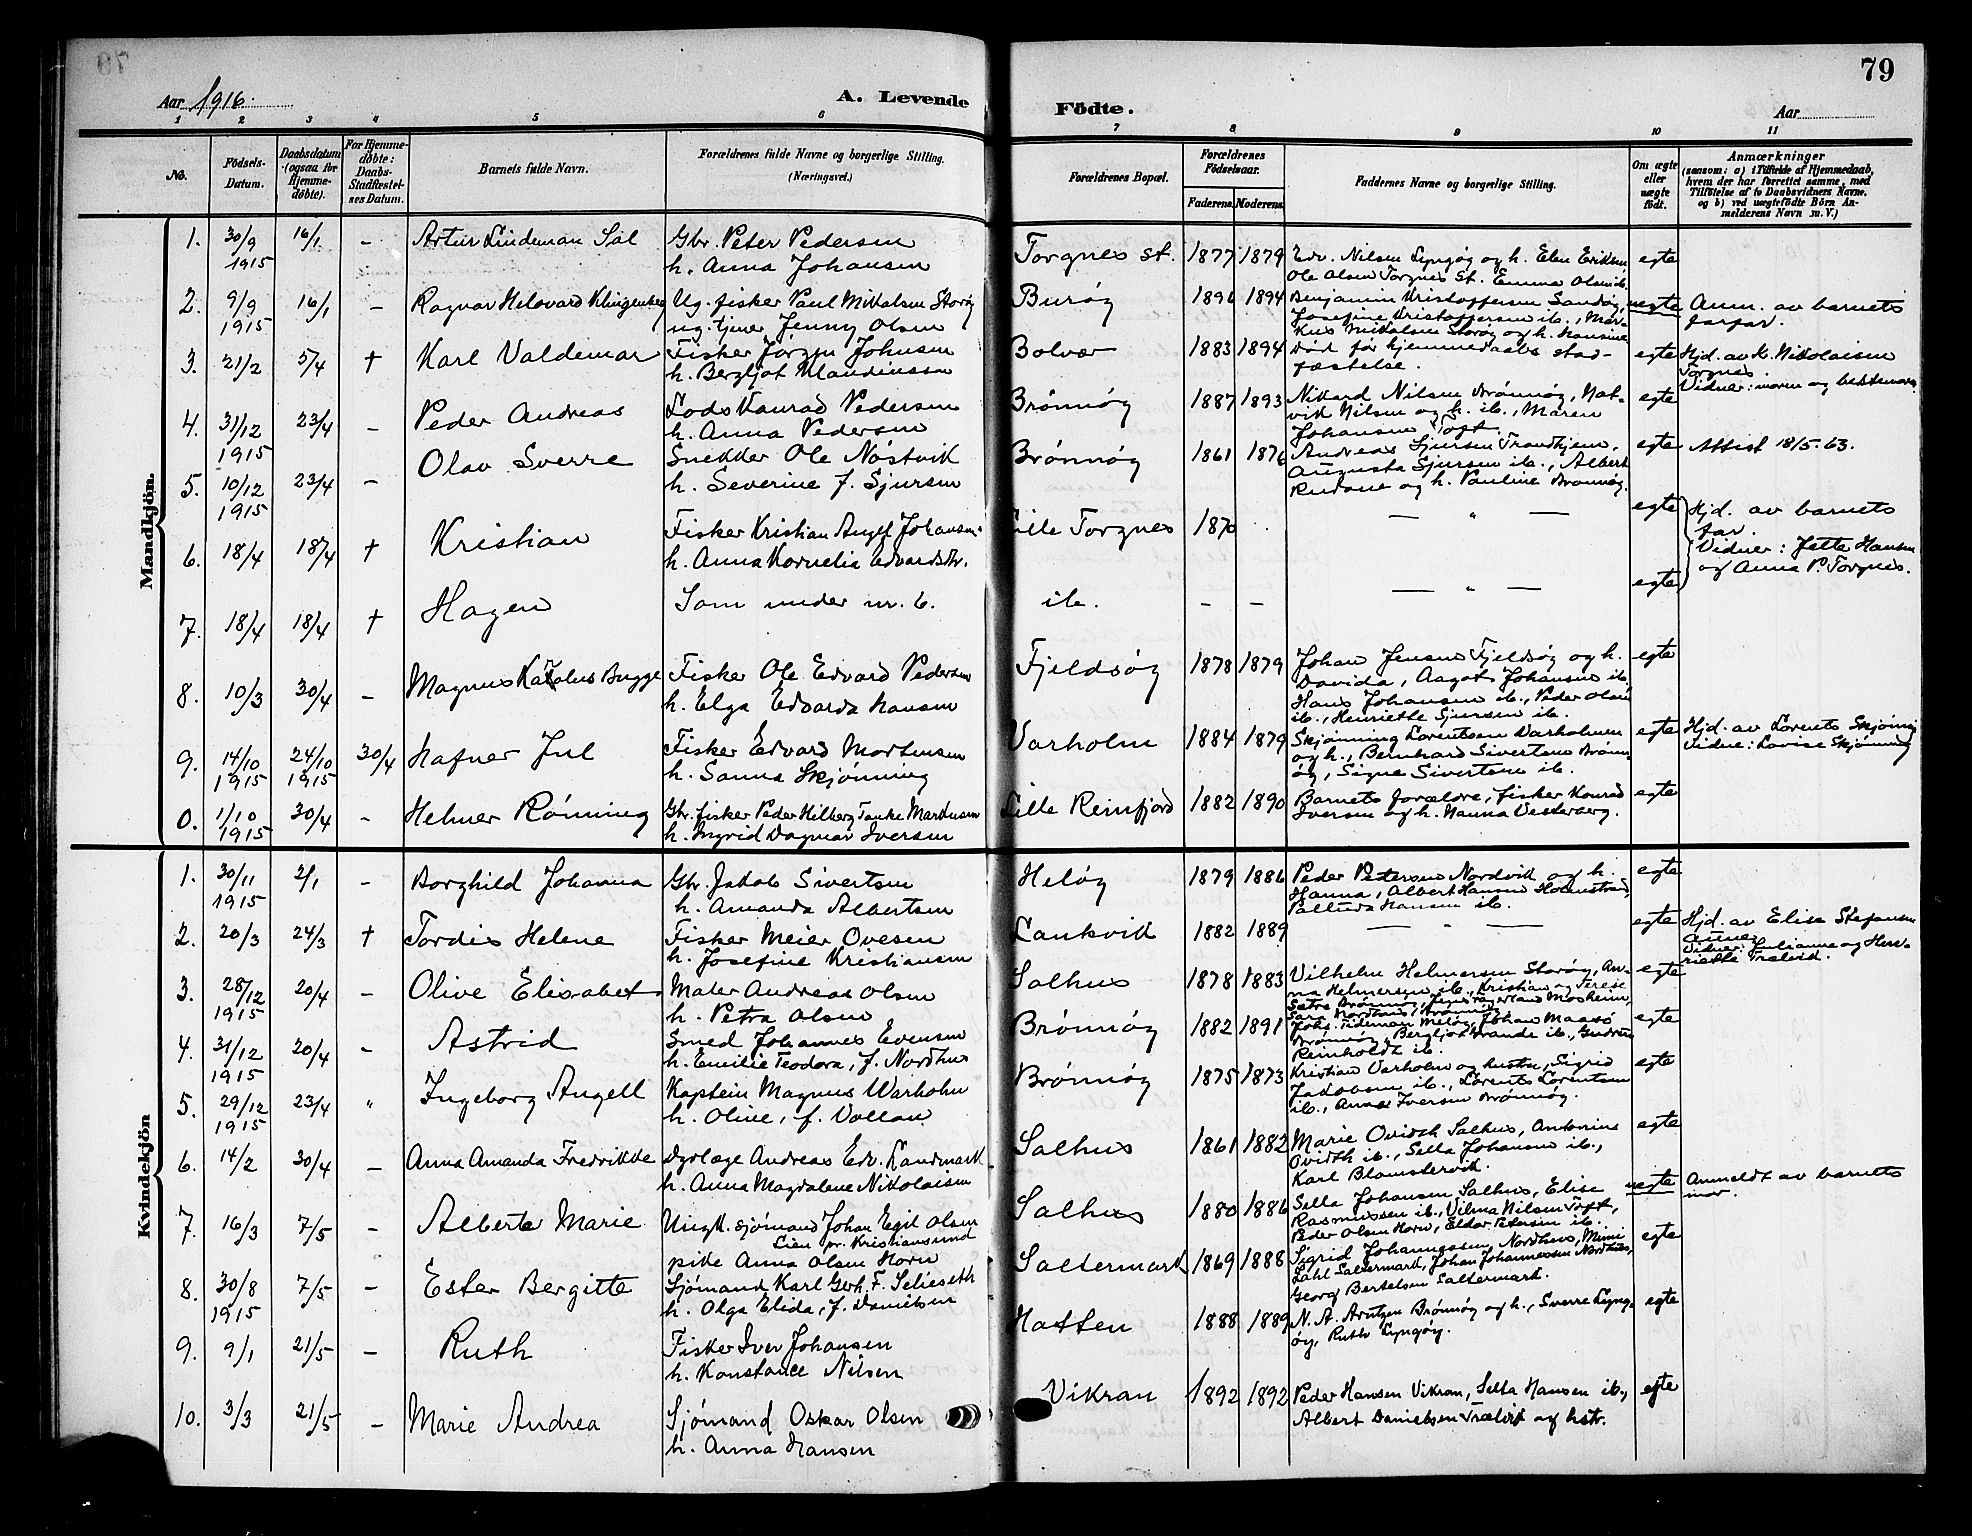 79
Aar 1916.
A. Levende
Födte.
Aar
1 2 3 4 5 6 7 8 9 10 11
No.
Födsels-Datum.
Daabsdatum (ogsaa for Hjemme-döbte).
For Hjemme-döbte: Daabs-Stadfæstel-ses Datum.
Barnets fulde Navn.
Forældrenes fulde Navne og borgerlige Stilling.
(Næringsvei.)
Forældrenes Bopæl.
Forældrenes Födselsaar.
Faderens. Moderens.
Faddernes Navne og borgerlige Stilling.
Om ægte eller uægte födt.
Anmærkninger
(saasom: a) i Tilfælde af Hjemmedaab, hvem der har forrettet samme, med Tilföielse af to Daabsvidners Navne, og b) ved uægtefödte Börn An-melderens Navn m. V.)
Mandkjön.
1. 30/9 1915 16/1 – Artur Lindeman Sol
Gbr. Peter Pedersen
h. Anna Johansen
Torgnes st. 1877 1879
Edv. Nilsen Lyngøy og h. Elen Eriksen,
Ole Olsen Torgnes st. Emma Olsen ib.
egte
2. 9/9 1915 16/1 – Ragnar Helovard Klingenberg
Ug. fisker Paul Mikalsen Storøy
ug. tjener Jenny Olsen
Burøy 1896 1894
Benjamin Kristoffersen Sandøy,
Josefine Kristoffersen ib., Mar-
kus Mikalsen Storøy og h. Hansine
uegte
Anm. av barnets
farfar.
3. 21/2 5/4 † Karl Valdemar
Fisker Jörgen Johnsen
h. Bergljot Klaudiussen
Bolvær 1883 1894
Död før hjemmedaabs stad-
fæstelse.
egte
Hjd. av K. Nikolaisen
Torgnes.
Vidner: moren og bestemoren
4. 31/12 1915 23/4 – Peder Andreas
Lods Konrad Pedersen
h. Anna Pedersen
Brønnøy 1887 1893
Nikard Nilsen Brønnøy, Hol-
vik Nilsen og h. ib., Maren
Johansen Toft.
egte
5. 10/12 1915 23/4 – Olav Sverre
Snekker Ole Nöstvik
h. Severine f. Sjursen
Brønnøy 1861 1876
Andreas Sjursen Trondhjem,
Augusta Sjursen ib., Albert
Rudone og h. Pauline Brønnøy.
egte
Attest 18/5-63.
6. 18/4 18/4 † Kristian
Fisker Kristian Angel Johansen
h. Anna Kornelia Edvardsdtr.
Lille Torgnes 1870
— " —
egte
Hjd. av barnets
far.
Vidner: Jette Hansen
og Anna P. Torgnes.
7. 18/4 18/4 † Hagen
Som under nr. 6.
ib. – –
— " —
egte
8. 10/3 30/4 – Magnus Karolus Bugge
Fisker Ole Edvard Pedersen
h. Elga Edvarda Hansen
Fjeldsøy 1878 1879
Johan Jensen Fjeldsøy og h.
Davida, Aagot Johansen ib.
Hans Johansen ib., Peder Olsen
ib., Henriette Sjursen ib.
egte
9. 14/10 1915 24/10 1915 30/4 Hafner Jul
Fisker Edvard Mortensen
h. Sanna Skjønning
Varholm 1884 1879
Skjønning Lorentsen Varholmen
og h., Bernhard Sivertsen Brønn-
øy, Signe Sivertsen ib.
egte
Hjd. av Lorents Skjønning
Vidne: Lovise Skjønning
0. 1/10 1915 30/4 – Helmer Rönning
Gbr. fisker Peder Hilberg Tanke Markusen
h. Ingrid Dagmar Iversen
Lille Reinfjord 1882 1890
Barnets forældre, fisker Konrad
Iversen og h. Hanna Vesterberg.
egte
Kvindekjön
1. 30/11 1915 2/1 – Borghild Johanna
Gbr. Jakob Sivertsen
h. Amanda Albertsen
Heløy 1879 1886
Peder Petersen Nordvik og h.
Hanna, Albert Hansen Holmstrand,
Palluda Hansen ib.
egte
2. 20/3 24/3 † Tordis Helene
Fisker Meier Ovesen
h. Josefine Kristiansen
Lankvik 1882 1889
— " —
egte
Hjd. av Elise Stefansen
Aune.
Vidner: Julianne og Hen-
riette Trælvik.
3. 28/12 1915 20/4 – Olive Elisabet
Maler Andreas Olsen
h. Petra Olsen
Salhus 1878 1883
Vilhelm Helmersen Storøy, An-
na Helmersen ib., Kristian og Terese
Sætra Brønnøy, Jens Fagerland Mosheim,
Sara Nordhus, Brønnøy
egte
4. 31/12 1915 20/4 – Astrid
Smed Johannes Evensen
h. Emilie Teodora, f. Nordhus
Brönnöy 1882 1891
Johs. Tideman Meløy, Johan Maasö
Brønnøy, Bergljot Strande ib., Gudrun
Reinholdt ib.
egte
5. 29/12 1915 23/4 " Ingeborg Angell
Kaptein Magnus Varholm
h. Oline, f. Vollan
Brönnöy 1875 1873
Kristian Varholm og hustru, Sigrid
Jakobsen ib., Lorents Lorentsen
ib., Anna Iversen Brønnøy.
egte
6. 14/2 30/4 – Anna Amanda Fredrikke
Dyrlæge Andreas Edv. Landmark
h. Anna Magdalene Nikolaisen
Salhus 1861 1882
Marie Ovidth Salhus, Antonius
Ovidth ib., Sella Johansen ib.,
Karl Blomstervik.
egte
7. 16/3 7/5 – Alberte Marie
Ungk. sjömand Johan Egil Olsen
Lien pr. Kristiansund
pike Anna Olsen Horn
Salhus 1880 1886
Sella Johansen Salhus, Elise
Rasmussen ib., Vilma Nilsen Toft,
Peder Olsen Horn, Eldor Petersen ib.
uegte
Anmeldt av barnets
mor.
8. 30/8 1915 7/5 – Ester Bergitte
Sjömand Karl Gerh. F. Selieseth
h. Olga Elida, f. Danielsen
Saltermark 1869 1888
Sigrid Johannessen Nordhus, Mimi
Dahl Saltermark, Johan Johannessen Nordhus,
Georg Bertelsen Saltermark.
egte
9. 9/1 21/5 – Ruth
Fisker Iver Johansen
h. Konstance Nilsen
Hatten 1888 1889
N. A. Arntzen Brønnøy og h., Sverre Lyng-
øy, Ruth Lyngøy.
egte
10. 3/3 21/5 – Marie Andrea
Sjömand Oskar Olsen
h. Anna Hansen
Vikran 1892 1892
Peder Hansen Vikran, Sella Hansen ib.,
Albert Danielsen Trælvik og hstr.
egte